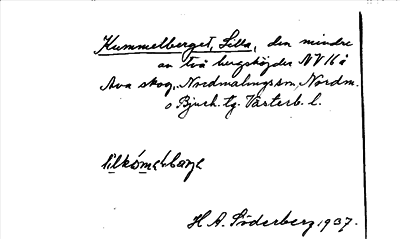 Kummelberget, Lilla, den mindre
av två bergshöjder NV 16 å
Ava skog, Nordmalings sn, Nordm.
o Bjurh. tg. Västerb. l.
H A. Söderberg, 1937.